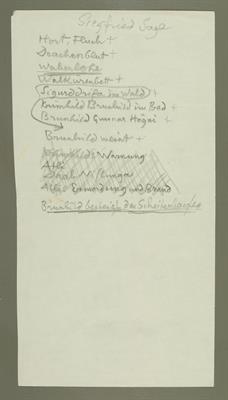 Siegfried Sage
Hort, Fluch +
Drachenblut +
Waberlohe
Walkürenbett +
Sigurddrifa im Wald +
Krimhild Brunhild im Bad +
Brunhild Gunnar Högni +
Brunhild weint +
Krimhilds Warnung
Atli
Drah Niflunga
Atlis Ermordung und Brand
Brunhild besteigt den Scheiterhaufen